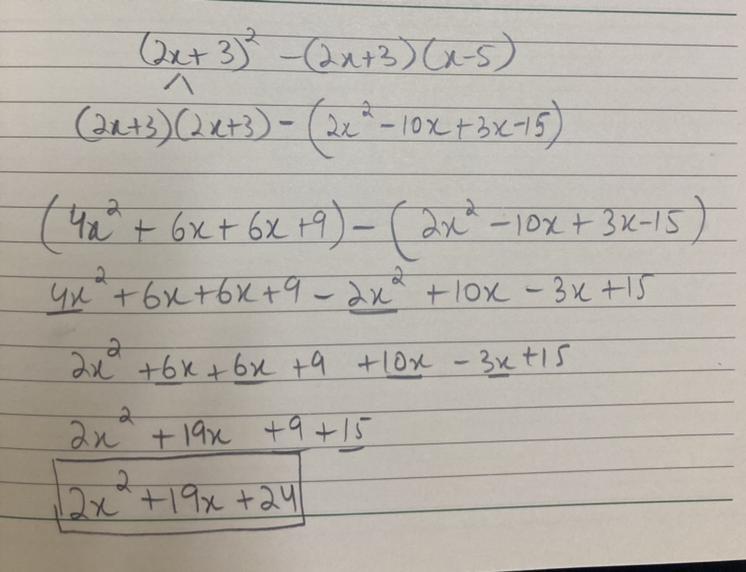 (2x+3)² -(2x+3)(x-5)
(2x+3)(2x+3)-(2x²-10x+3x-15)
(4x²+6x+6x+9)-(2x²-10x+3x-15)
4x²+6x+6x+9-2x²+10x-3x+15
2x²+6x+6x+9 +10x-3x+15
2x²+19x +9+15
2x²+19x+24